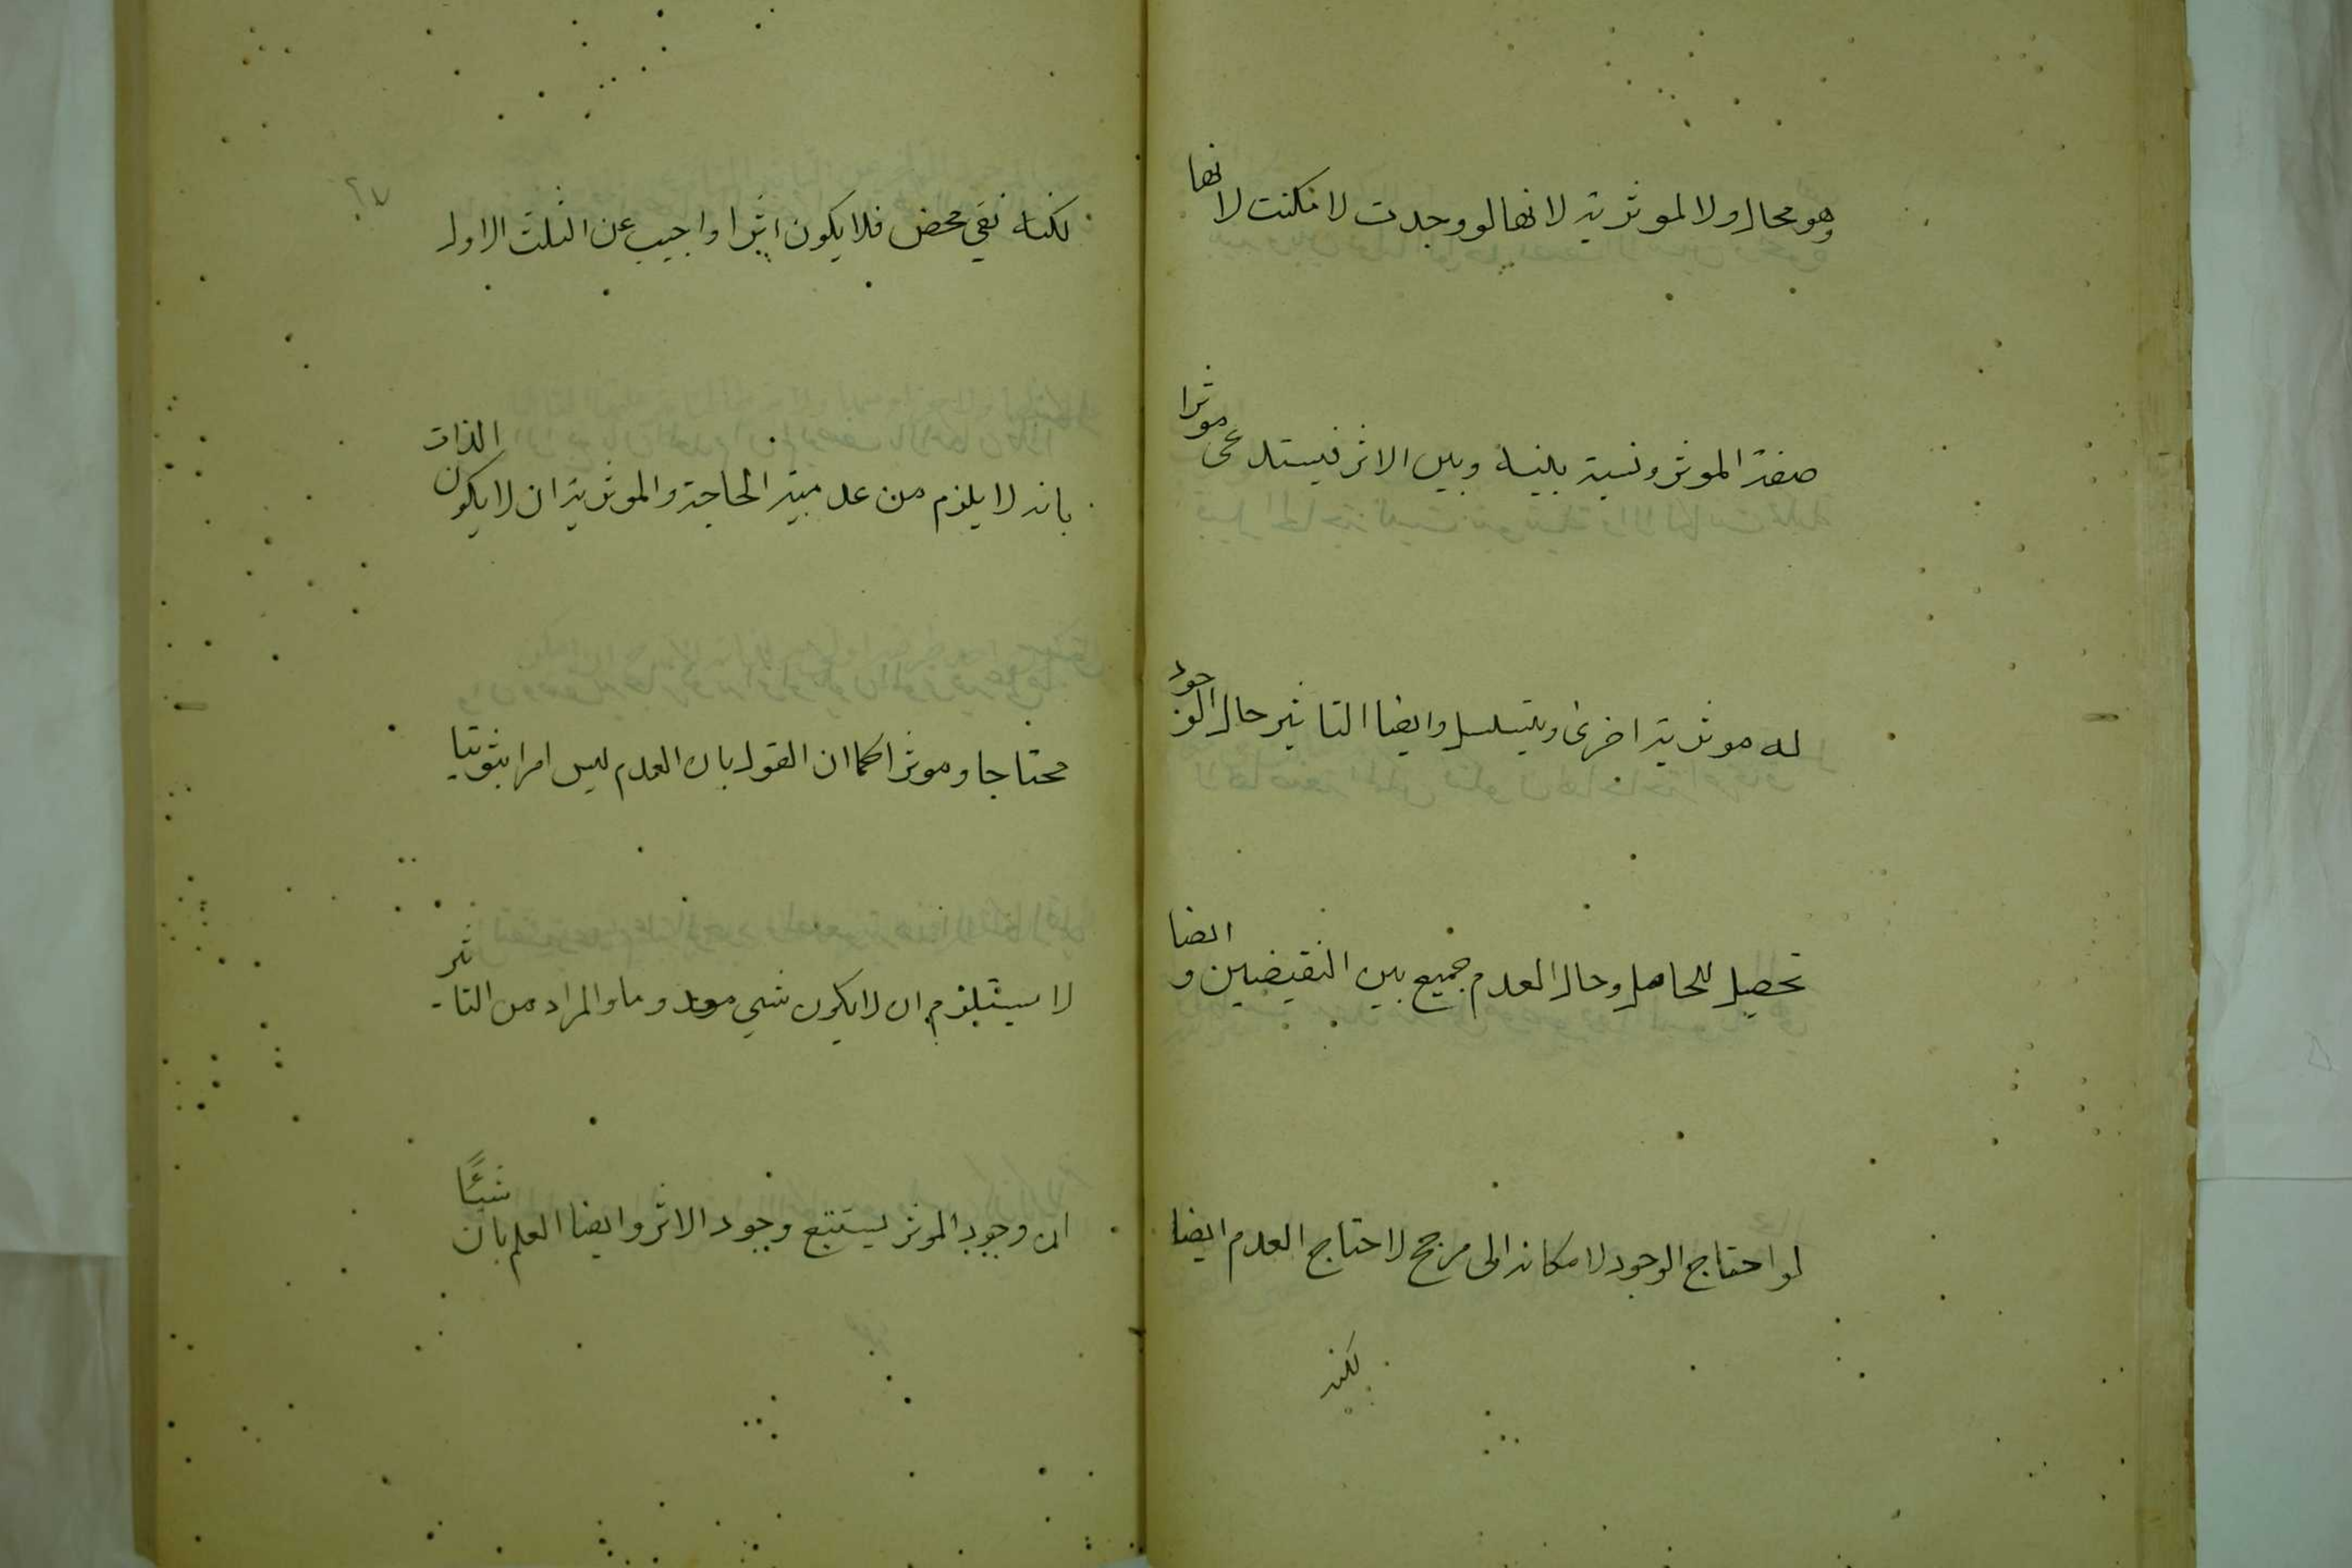 وهو محال ولا لموثرية لانها لو وجدت لامكنت لانها
صفة الموثر ونسبة بينه وبين الاثر فيستدعى موثرا
له موثرية اخرى ويتسلسل وايضا التاثير حال الوجود
تحصيل للحاصل وحال العدم جميع بين النقيضين وايضا
لو احتاج الوجود لامكانه الى مرجح لاحتاج العدم ايضا
لكنه
لكنه نفي محض فلا يكون اثرا واجيب عن الثلث الاول
بانه لا يلزم من عدمية الحاجة والموثرية ان لا يكون الذات
محتاجا وموثرا كما ان القول بان العدم ليس امرا ثبوتيا
لا يستلزم ان لا يكون شي معدوما والمراد من التاثير
ان وجود الموثر يستتبع وجود الاثر وايضا العلم بان شيئًا